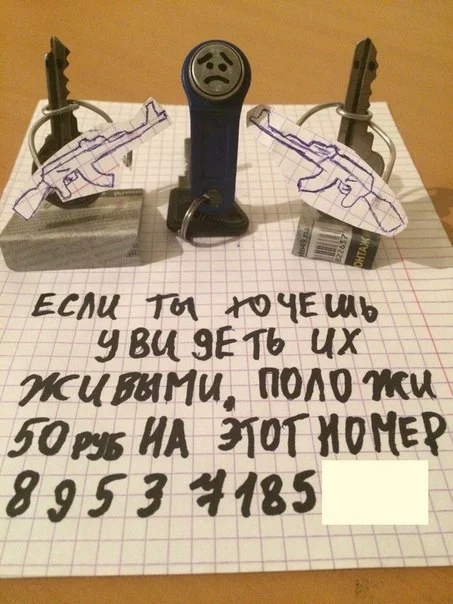 ЕСЛИ ТЫ ХОЧЕШЬ
УВИДЕТЬ ИХ
ЖИВЫМИ, ПОЛОЖИ
50 РУБ НА ЭТОТ НОМЕР
8 9 5 3 7 185